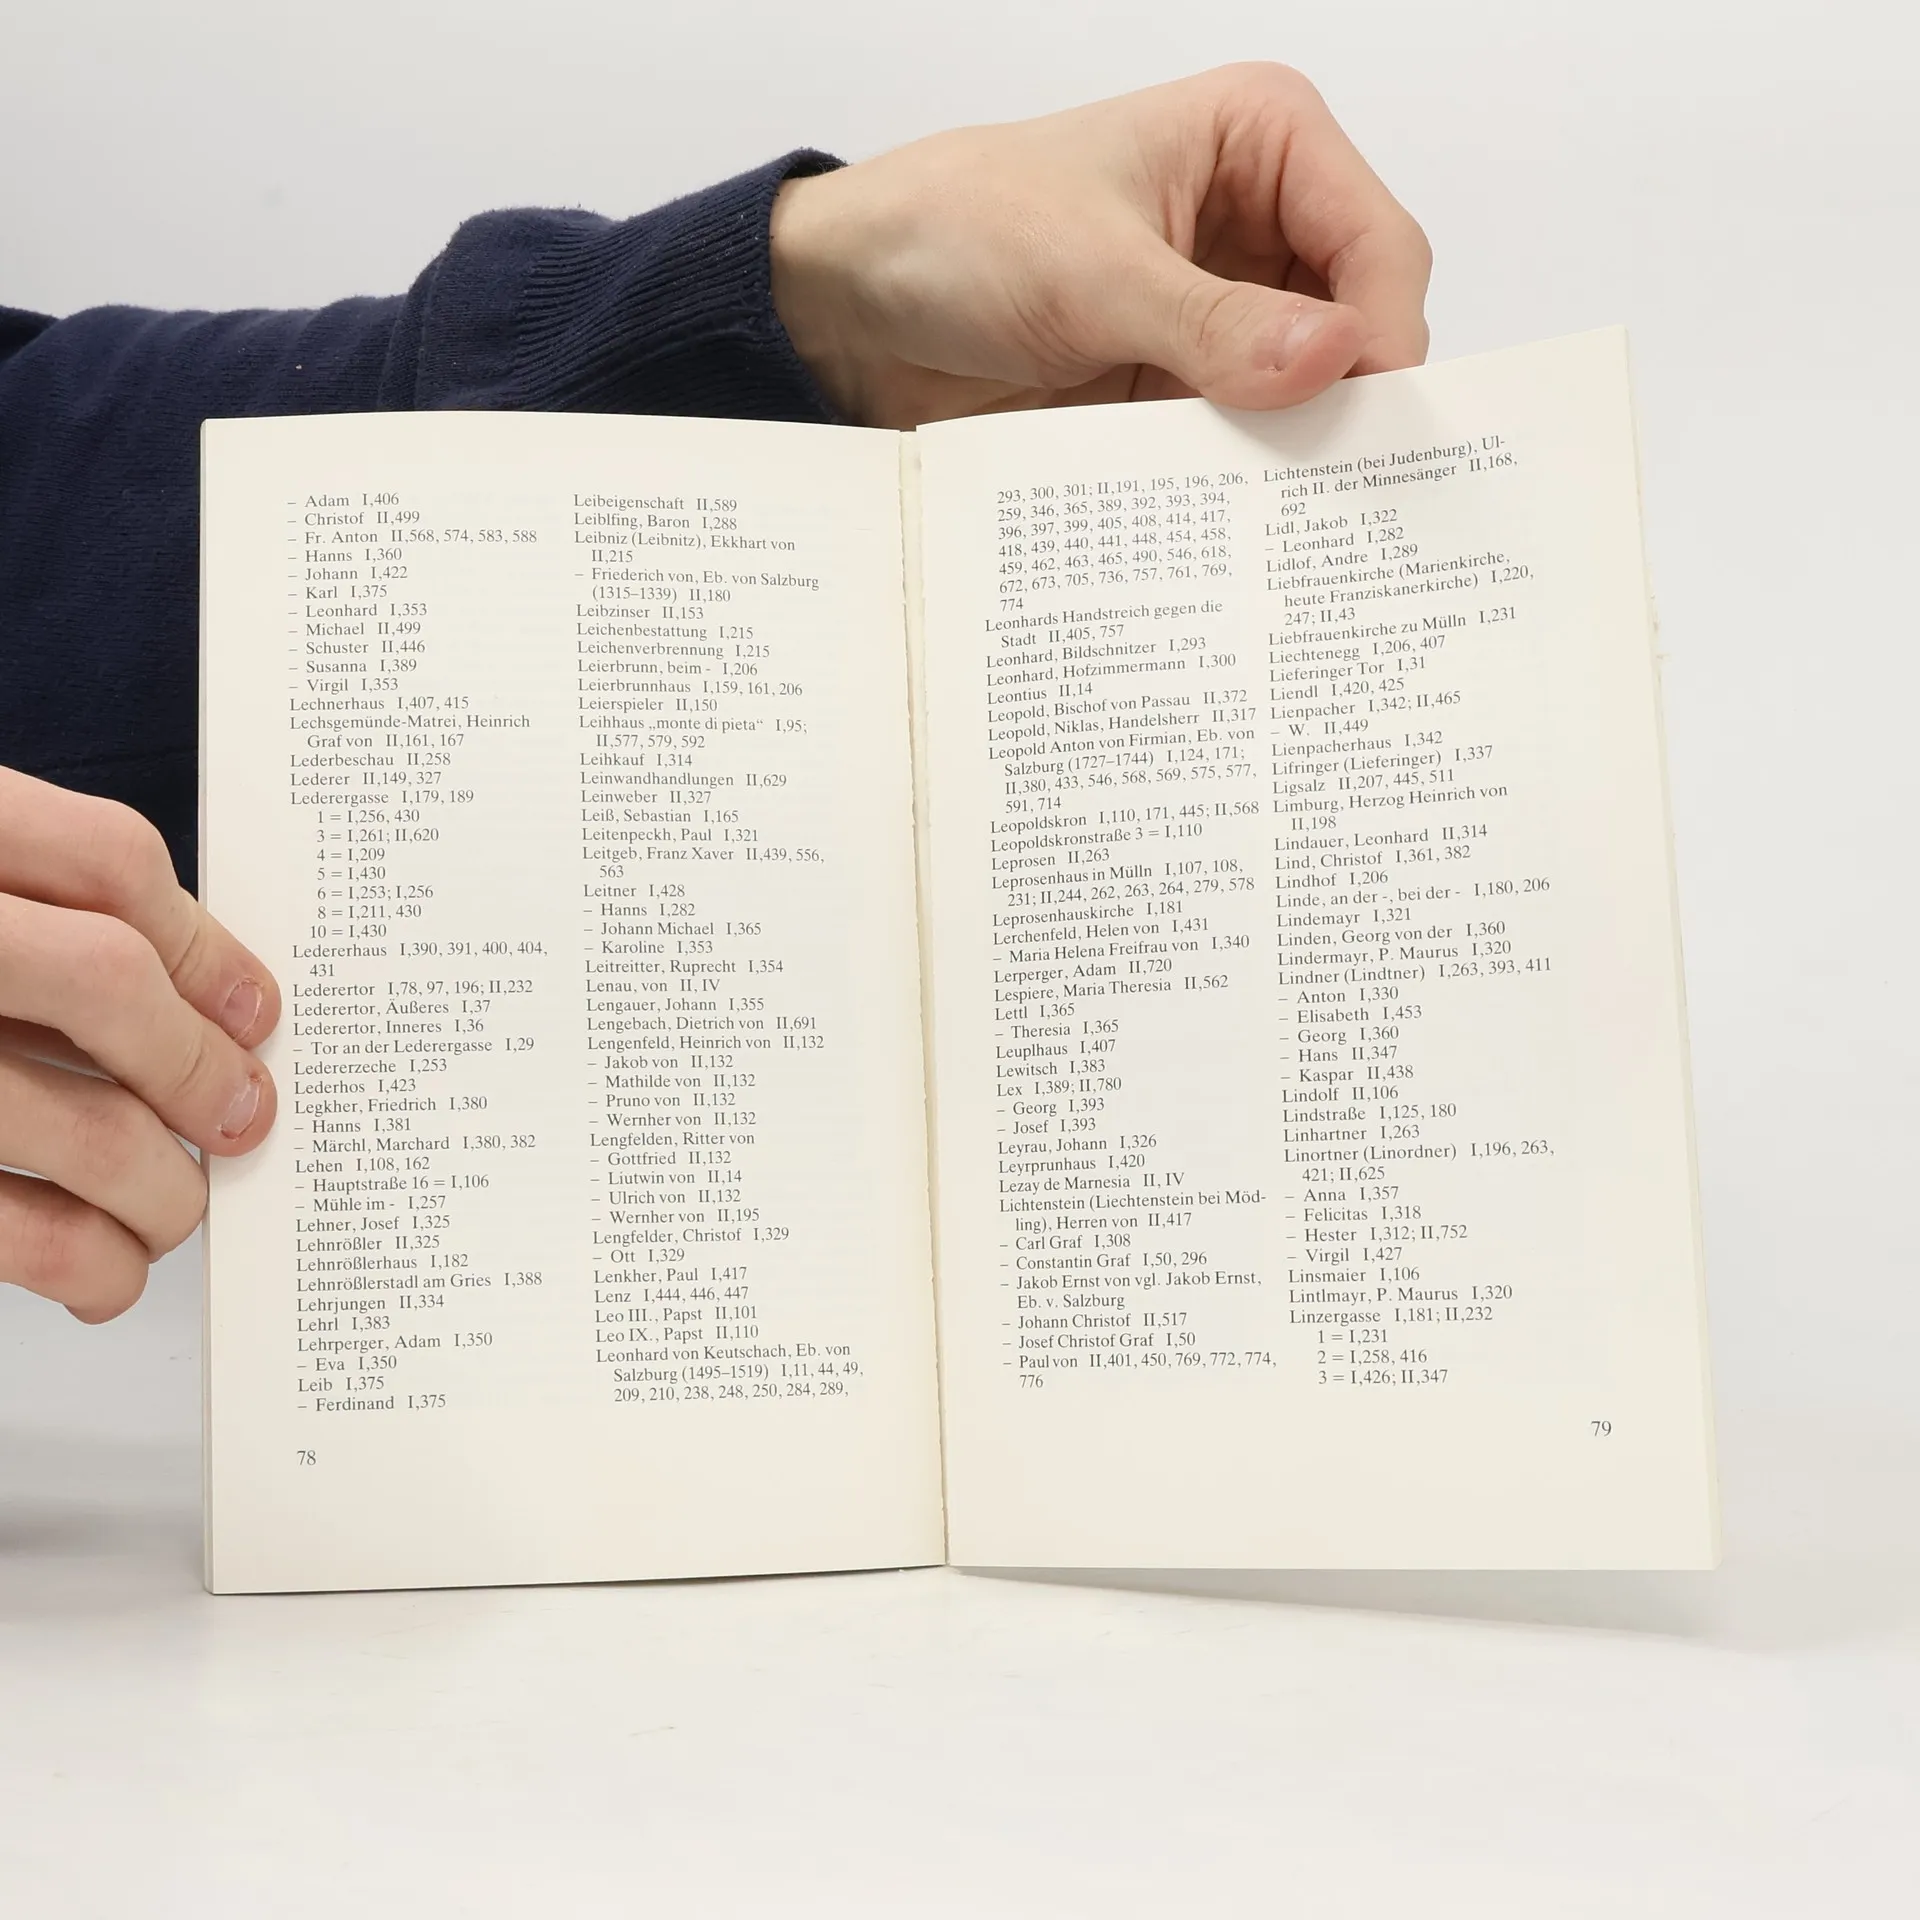 – Adam I,406
– Christof II,499
– Fr. Anton II,568, 574, 583, 588
– Hanns I,360
– Johann I,422
– Karl I,375
– Leonhard I,353
– Michael II,499
– Schuster II,446
– Susanna I,389
– Virgil I,353
Lechnerhaus I,407, 415
Lechsgemünde-Matrei, Heinrich
Graf von II,161, 167
Lederbeschau II,258
Lederer II,149, 327
Lederergasse I,179, 189
1 = I,256, 430
3 = I,261; II,620
4 = I,209
5 = I,430
6 = I,253; I,256
8 = I,211, 430
10 = I,430
Ledererhaus I,390, 391, 400, 404,
431
Lederertor I,78, 97, 196; II,232
Lederertor, Äußeres I,37
Lederertor, Inneres I,36
– Tor an der Lederergasse I,29
Ledererzeche I,253
Lederhos I,423
Legkher, Friedrich I,380
– Hanns I,381
– Märchl, Marchard I,380, 382
Lehen I,108, 162
– Hauptstraße 16 = I,106
– Mühle im - I,257
Lehner, Josef I,325
Lehnrößler II,325
Lehnrößlerhaus I,182
Lehnrößlerstadl am Gries I,388
Lehrjungen II,334
Lehrl I,383
Lehrperger, Adam I,350
– Eva I,350
Leib I,375
– Ferdinand I,375
78
Leibeigenschaft II,589
Leiblfing, Baron I,288
Leibniz (Leibnitz), Ekkhart von
II,215
– Friederich von, Eb. von Salzburg
(1315–1339) II,180
Leibzinser II,153
Leichenbestattung I,215
Leichenverbrennung I,215
Leierbrunn, beim - I,206
Leierbrunnhaus I,159, 161, 206
Leierspieler II,150
Leihhaus „monte di pieta“ I,95;
II,577, 579, 592
Leihkauf I,314
Leinwandhandlungen II,629
Leinweber II,327
Leiß, Sebastian I,165
Leitenpeckh, Paul I,321
Leitgeb, Franz Xaver II,439, 556,
563
Leitner I,428
– Hanns I,282
– Johann Michael I,365
– Karoline I,353
Leitreitter, Ruprecht I,354
Lenau, von II, IV
Lengauer, Johann I,355
Lengebach, Dietrich von II,691
Lengenfeld, Heinrich von II,132
– Jakob von II,132
– Mathilde von II,132
– Pruno von II,132
– Wernher von II,132
Lengfelden, Ritter von
– Gottfried II,132
– Liutwin von II,14
– Ulrich von II,132
– Wernher von II,195
Lengfelder, Christof I,329
– Ott I,329
Lenkher, Paul I,417
Lenz I,444, 446, 447
Leo III., Papst II,101
Leo IX., Papst II,110
Leonhard von Keutschach, Eb. von
Salzburg (1495–1519) I,11, 44, 49,
209, 210, 238, 248, 250, 284, 289,
293, 300, 301; II,191, 195, 196, 206,
259, 346, 365, 389, 392, 393, 394,
396, 397, 399, 405, 408, 414, 417,
418, 439, 440, 441, 448, 454, 458,
459, 462, 463, 465, 490, 546, 618,
672, 673, 705, 736, 757, 761, 769,
774
Leonhards Handstreich gegen die
Stadt II,405, 757
Leonhard, Bildschnitzer I,293
Leonhard, Hofzimmermann I,300
Leontius II,14
Leopold, Bischof von Passau II,372
Leopold, Niklas, Handelsherr II,317
Leopold Anton von Firmian, Eb. von
Salzburg (1727–1744) I,124, 171;
II,380, 433, 546, 568, 569, 575, 577,
591, 714
Leopoldskron I,110, 171, 445; II,568
Leopoldskronstraße 3 = I,110
Leprosen II,263
Leprosenhaus in Mülln I,107, 108,
231; II,244, 262, 263, 264, 279, 578
Leprosenhauskirche I,181
Lerchenfeld, Helen von I,431
– Maria Helena Freifrau von I,340
Lerperger, Adam II,720
Lespiere, Maria Theresia II,562
Lettl I,365
– Theresia I,365
Leuplhaus I,407
Lewitsch I,383
Lex I,389; II,780
– Georg I,393
– Josef I,393
Leyrau, Johann I,326
Leyrprunhaus I,420
Lezay de Marnesia II, IV
Lichtenstein (Liechtenstein bei Möd-
ling), Herren von II,417
– Carl Graf I,308
– Constantin Graf I,50, 296
– Jakob Ernst von vgl. Jakob Ernst,
Eb. v. Salzburg
– Johann Christof II,517
– Josef Christof Graf I,50
– Paul von II,401, 450, 769, 772, 774,
776
Lichtenstein (bei Judenburg), Ul-
rich II. der Minnesänger II,168,
692
Lidl, Jakob I,322
– Leonhard I,282
Lidlof, Andre I,289
Liebfrauenkirche (Marienkirche,
heute Franziskanerkirche) I,220,
247; II,43
Liebfrauenkirche zu Mülln I,231
Liechtenegg I,206, 407
Lieferinger Tor I,31
Liendl I,420, 425
Lienpacher I,342; II,465
– W. II,449
Lienpacherhaus I,342
Lifringer (Lieferinger) I,337
Ligsalz II,207, 445, 511
Limburg, Herzog Heinrich von
II,198
Lindauer, Leonhard II,314
Lind, Christof I,361, 382
Lindhof I,206
Linde, an der -, bei der - I,180, 206
Lindemayr I,321
Linden, Georg von der I,360
Lindermayr, P. Maurus I,320
Lindner (Lindtner) I,263, 393, 411
– Anton I,330
– Elisabeth I,453
– Georg I,360
– Hans II,347
– Kaspar II,438
Lindolf II,106
Lindstraße I,125, 180
Linhartner I,263
Linortner (Linordner) I,196, 263,
421; II,625
– Anna I,357
– Felicitas I,318
– Hester I,312; II,752
– Virgil I,427
Linsmaier I,106
Lintlmayr, P. Maurus I,320
Linzergasse I,181; II,232
1 = I,231
2 = I,258, 416
3 = I,426; II,347
79